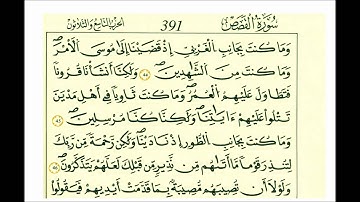 سُورَةُ القَصَصِ 391 الجُزْءُ التَّاسِعُ وَالثَّلَاثُونَ
وَمَا كُنتَ بِجَانِبِ ٱلْغَرْبِيِّ إِذْ قَضَيْنَآ إِلَىٰ مُوسَى ٱلْأَمْرَ
وَمَا كُنتَ مِنَ ٱلشَّٰهِدِينَ ٤٤ وَلَٰكِنَّآ أَنشَأْنَا قُرُونًا
فَتَطَاوَلَ عَلَيْهِمُ ٱلْعُمُرُ وَمَا كُنتَ ثَاوِيًا فِىٓ أَهْلِ مَدْيَنَ
تَتْلُوا۟ عَلَيْهِمْ ءَايَٰتِنَا وَلَٰكِنَّا كُنَّا مُرْسِلِينَ ٤٥
وَمَا كُنتَ بِجَانِبِ ٱلطُّورِ إِذْ نَادَيْنَا وَلَٰكِن رَّحْمَةً مِّن رَّبِّكَ
لِتُنذِرَ قَوْمًا مَّآ أَتَىٰهُم مِّن نَّذِيرٍ مِّن قَبْلِكَ لَعَلَّهُمْ يَتَذَكَّرُونَ
وَلَوْلَآ أَن تُصِيبَهُم مُّصِيبَةٌۢ بِمَا قَدَّمَتْ أَيْدِيهِمْ فَيَقُولُوا۟